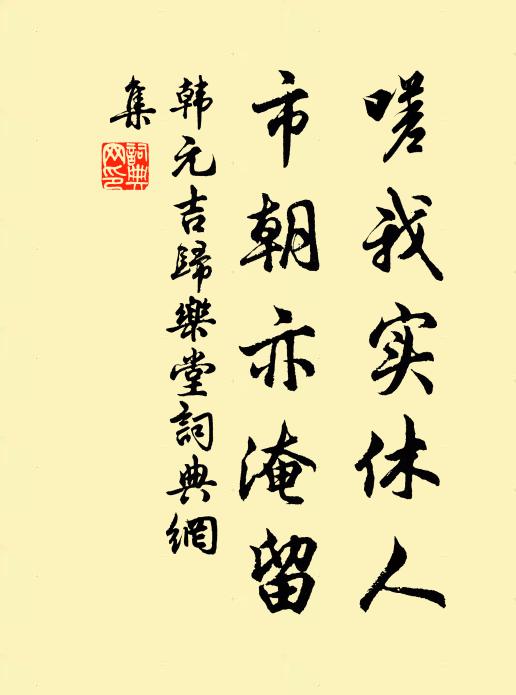 嗟我实休人
市朝亦淹留
韩元吉歸樂堂詞典網
集
詞典网印